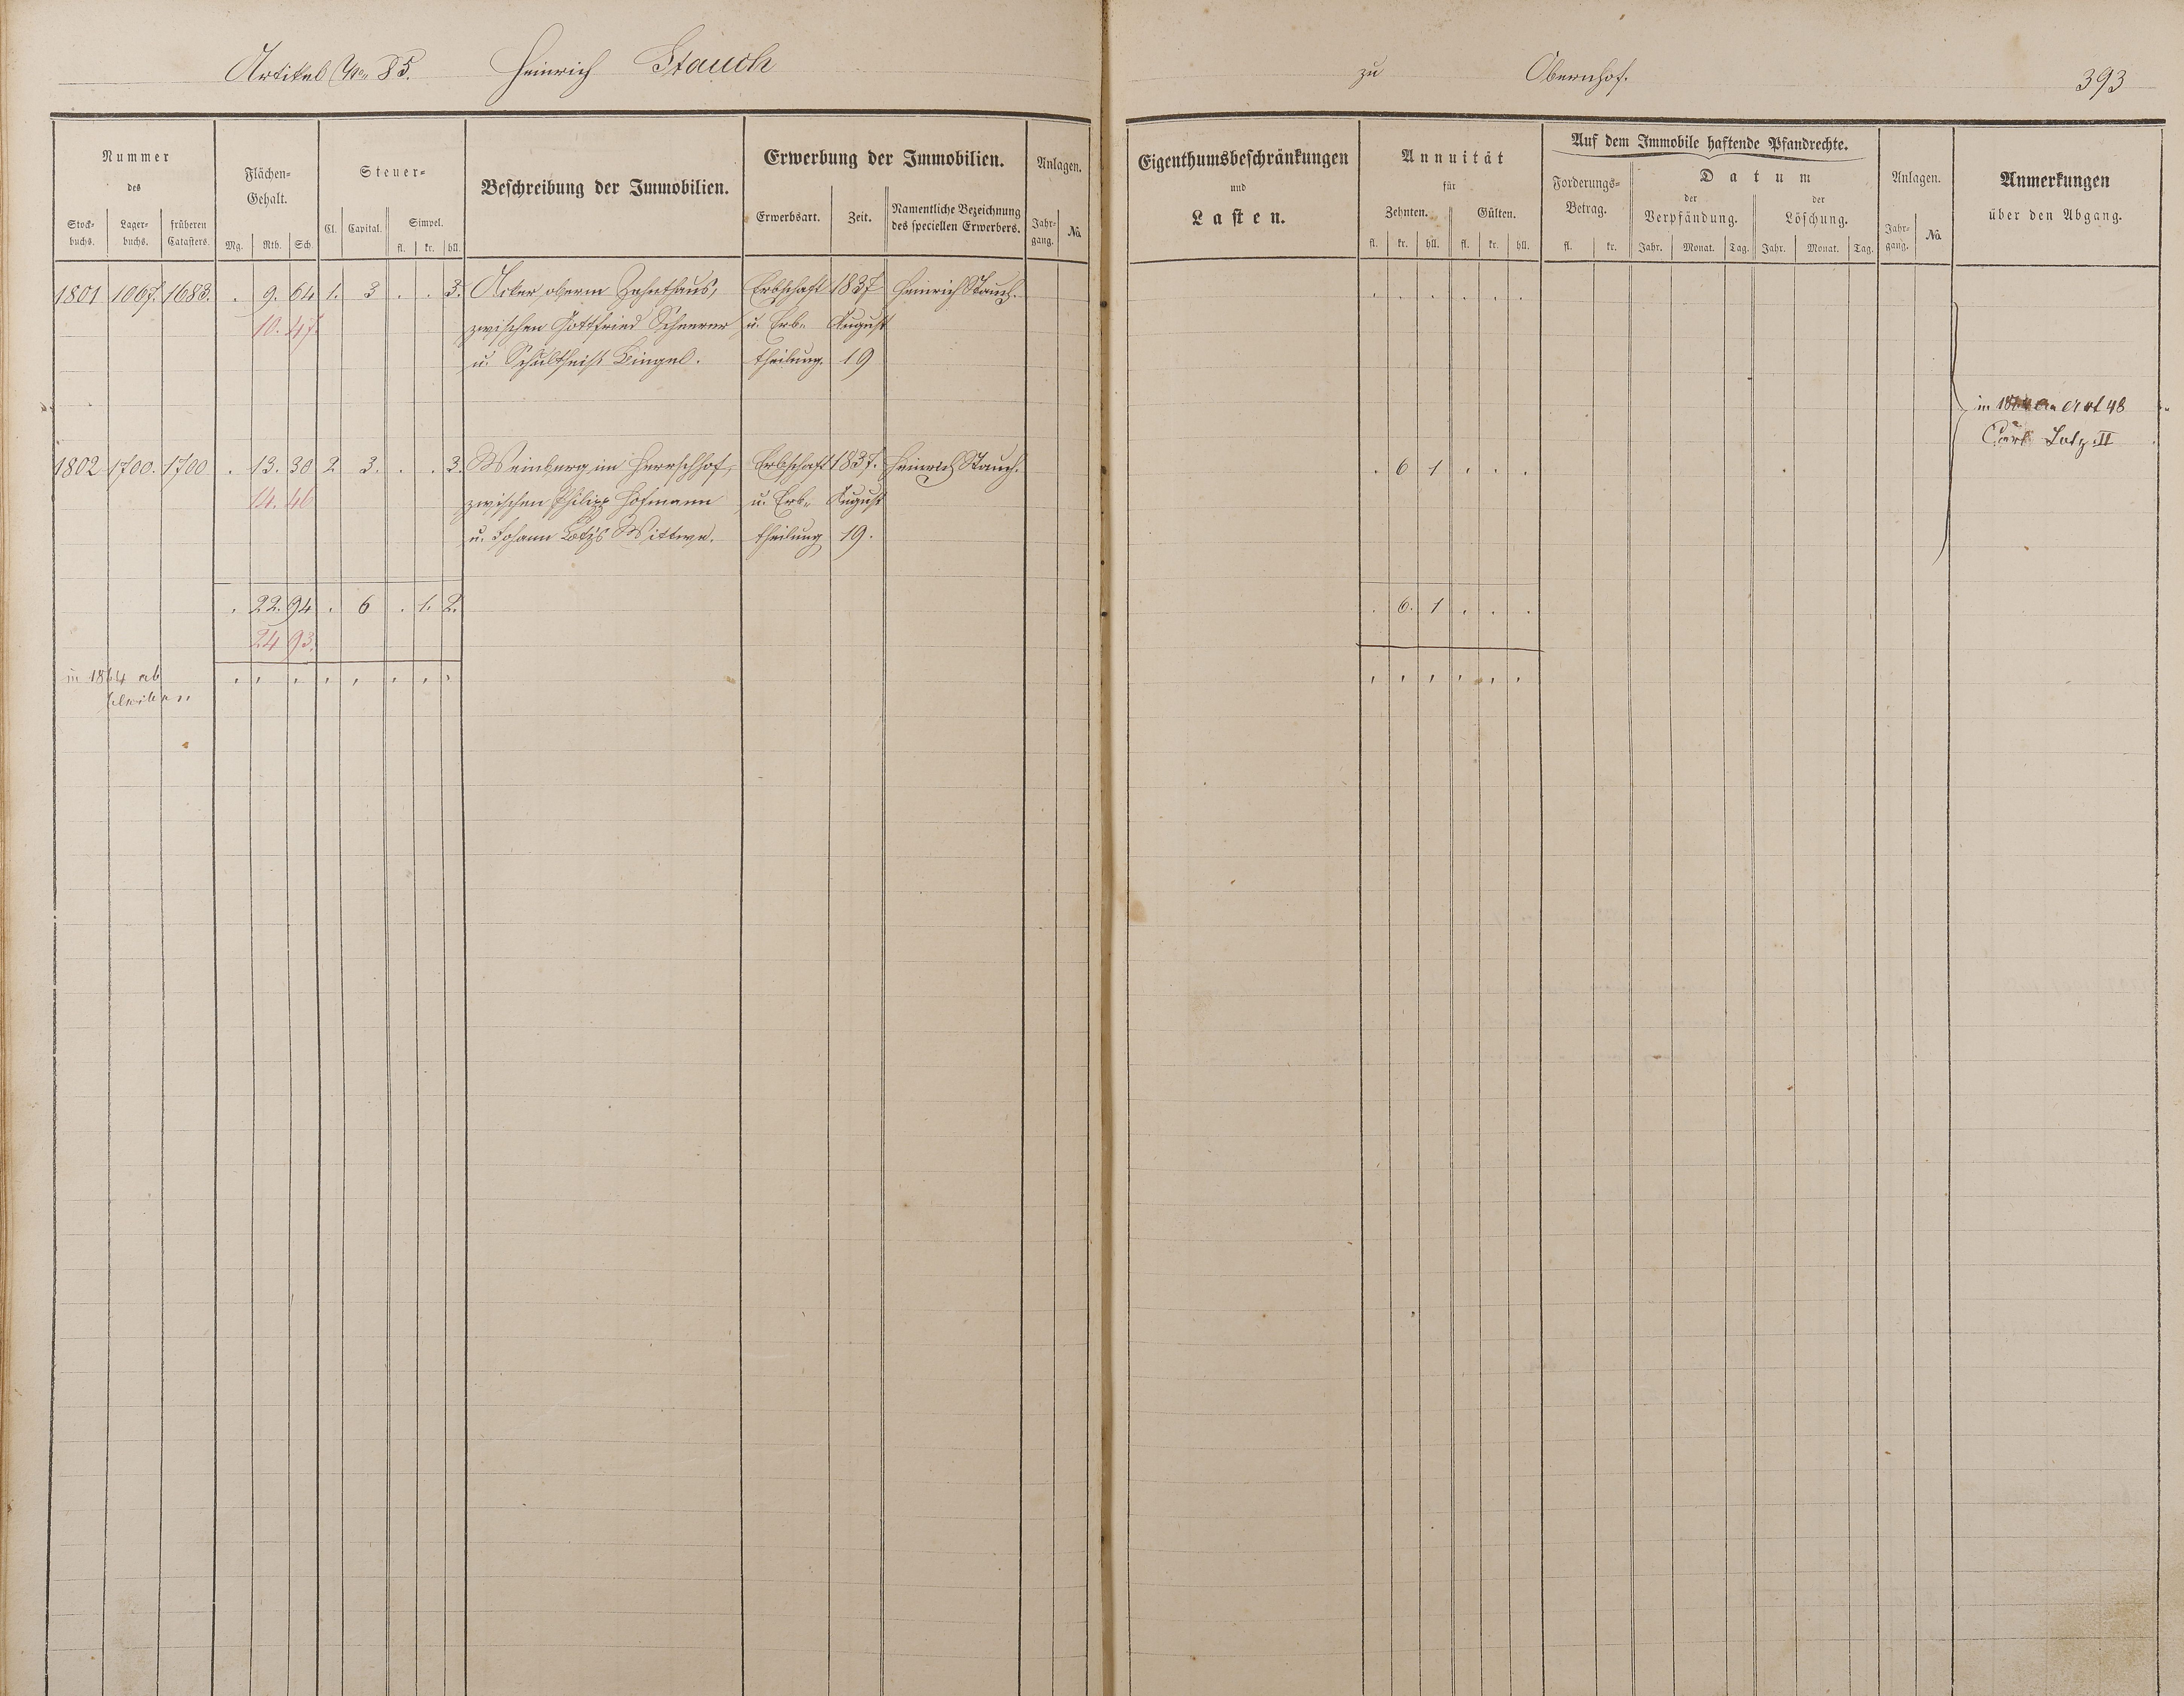 Artikel No. 85. Heinrich Stauch zu Obernhof. 393
Nummer des
Stock-buchs. Lager-buchs. früheren Catasters.
Flächen-Gehalt.
Mg. Rth. Sch.
Steuer-
Cl. Capital. Simpel.
fl. kr. hll.
Beschreibung der Immobilien.
Erwerbung der Immobilien.
Erwerbsart. Zeit. Namentliche Bezeichnung des speciellen Erwerbers.
Anlagen.
Jahr-gang. No.
Eigenthumsbeschränkungen
und
Lasten.
Annuität
für
Zehnten. Gülten.
fl. kr. hll. fl. kr. hll.
Auf dem Immobile haftende Pfandrechte.
Forderungs-Betrag.
fl. kr.
Datum
der Verpfändung. der Löschung.
Jahr. Monat. Tag. Jahr. Monat. Tag.
Anlagen.
Jahr-gang. No.
Anmerkungen
über den Abgang.
1801 1067. 1683. . 9. 64 1. 3 . . 3. Acker oberm Zehnthaus, Erbschaft 1837 Heinrich Stauch. . . . . . .
10. 47. zwischen Gottfried Scheerer u. Erb- August
u. Schultheiß Bingel. theilung. 19
in Art 48
Carl Lotz II
1802 1700. 1700 . 13. 30 2 3. . . 3. Weinberg im Herrschhof, Erbschaft 1837. Heinrich Stauch. . 6 1 . . .
14. 46 zwischen Philipp Hofmann u. Erb- August
u. Johann Lotz's Wittwe. theilung 19.
. 22. 94 . 6 . 1. 2. . 6. 1 . . .
24 93.
in 1864 ab